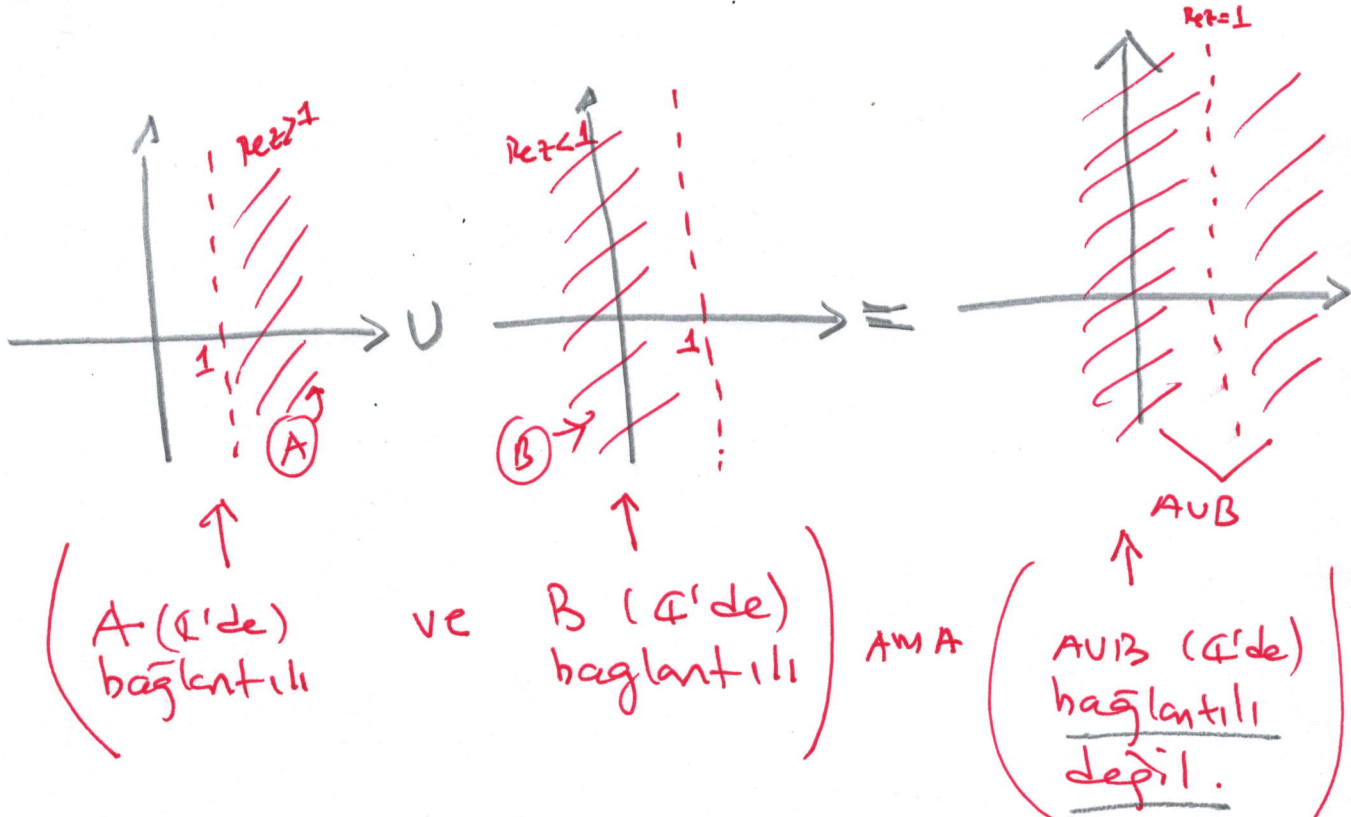 Rez=1
Rez>1
Rez<1
∪
=
1
1
A
B
A∪B
A (ℂ'de)
bağlantılı
ve
B (ℂ'de)
baglantılı
AMA
A∪B (ℂ'de)
bağlantılı
değil.